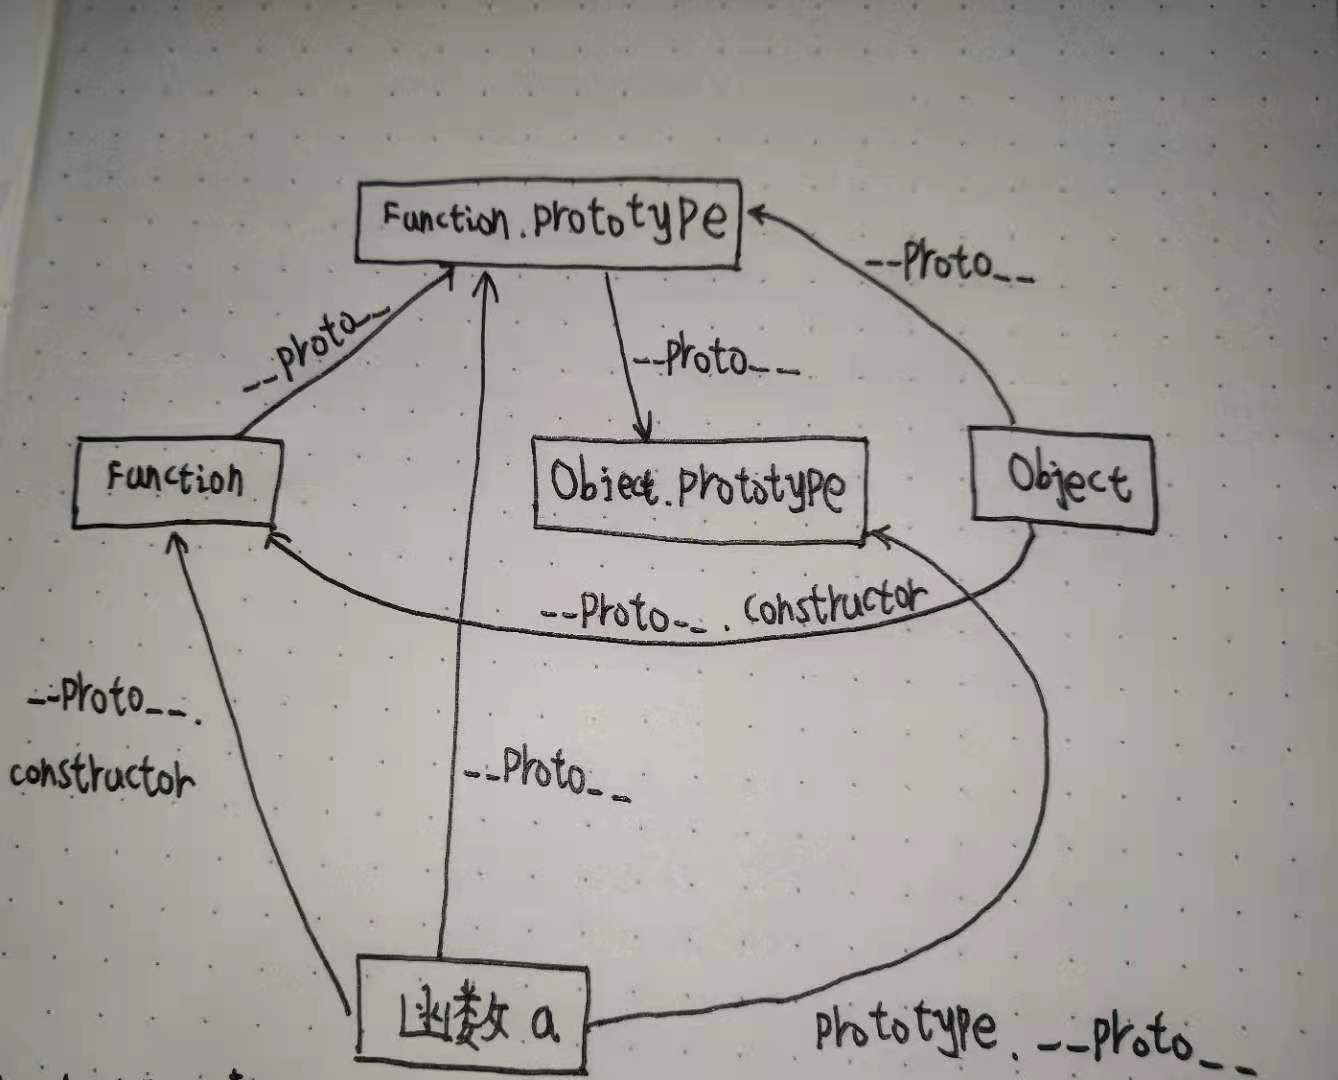 Function.prototype
--proto--
--proto--
--proto--
Function
Object.prototype
Object
--proto--.constructor
--proto--.
constructor
--proto--
函数 a
prototype.--proto--